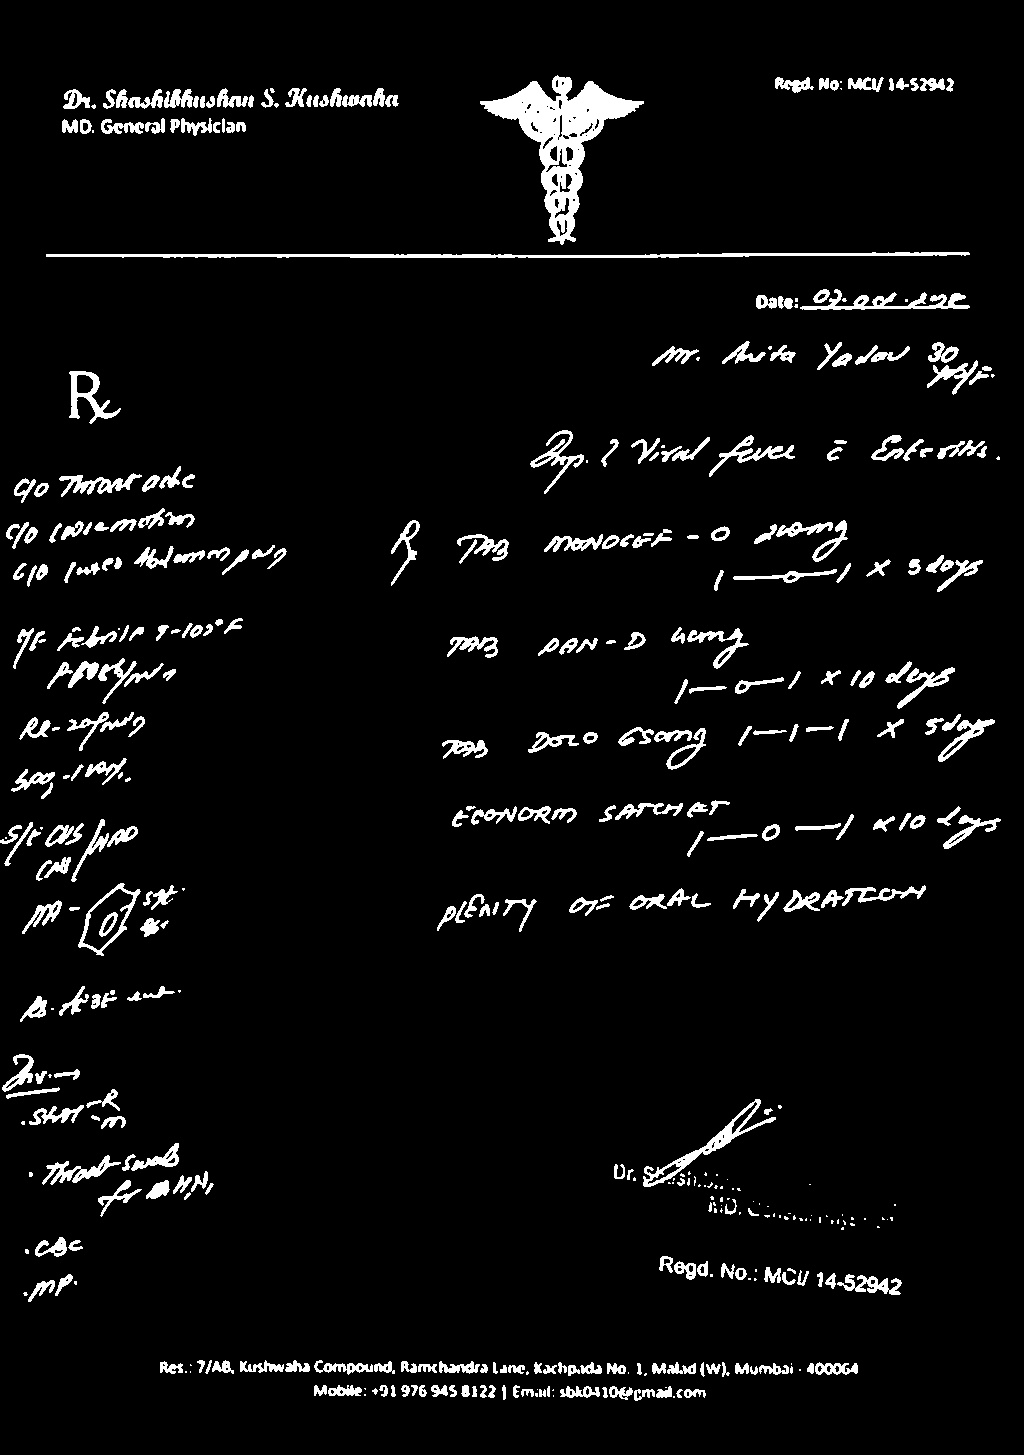 Dr. Shashibhushan S. Kushwaha
MD. General Physician
Regd. No: MCI/ 14-52942
Date:
Mr. Anita Yadav 30
yrs/F.
Rx
Imp. ? Viral fever c̄ Enteritis.
C/o Throat ache
C/o Loose motion
C/o Lower Abdomen pain
O/E Febrile T-102°F
RR- 20/min
SPO2 -
S/E CVS
CNS / NAD
PA -
Inv. →
. Stool - R
- M
. Throat Swab
for H1N1
. CBC
. MP.
Rx TAB MONOCEF - O 200mg
1 — o — 1 X 5 days
TAB PAN - D 40mg
1 — o — 1 X 10 days
TAB DOLO 650mg 1 — 1 — 1 X 5 days
ECONORM SATCHET
1 — o — 1 X 10 days
PLENTY OF ORAL HYDRATION
Dr. Shashibh
MD. General Physician
Regd. No.: MCI/ 14-52942
Res.: 7/AB, Kushwaha Compound, Ramchandra Lane, Kachpada No. 1, Malad (W), Mumbai - 400064
Mobile: +91 976 945 8122 | Email: sbk0410@gmail.com